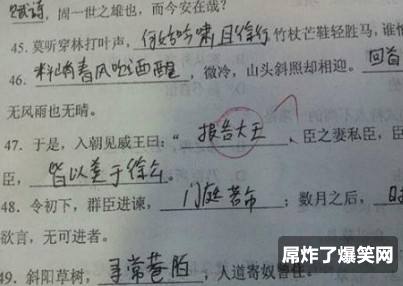 赋诗，固一世之雄也，而今安在哉？
45. 莫听穿林打叶声，何妨吟啸且徐行 竹杖芒鞋轻胜马，谁怕
46. 料峭春风吹酒醒，微冷，山头斜照却相迎。回首
无风雨也无晴。
47. 于是，入朝见威王曰：“报告大王、臣之妻私臣，臣
臣，皆以美于徐公。
48. 令初下，群臣进谏，门庭若市；数月之后，
欲言，无可进者。
49. 斜阳草树，寻常巷陌，人道寄奴曾住。
屌炸了爆笑网